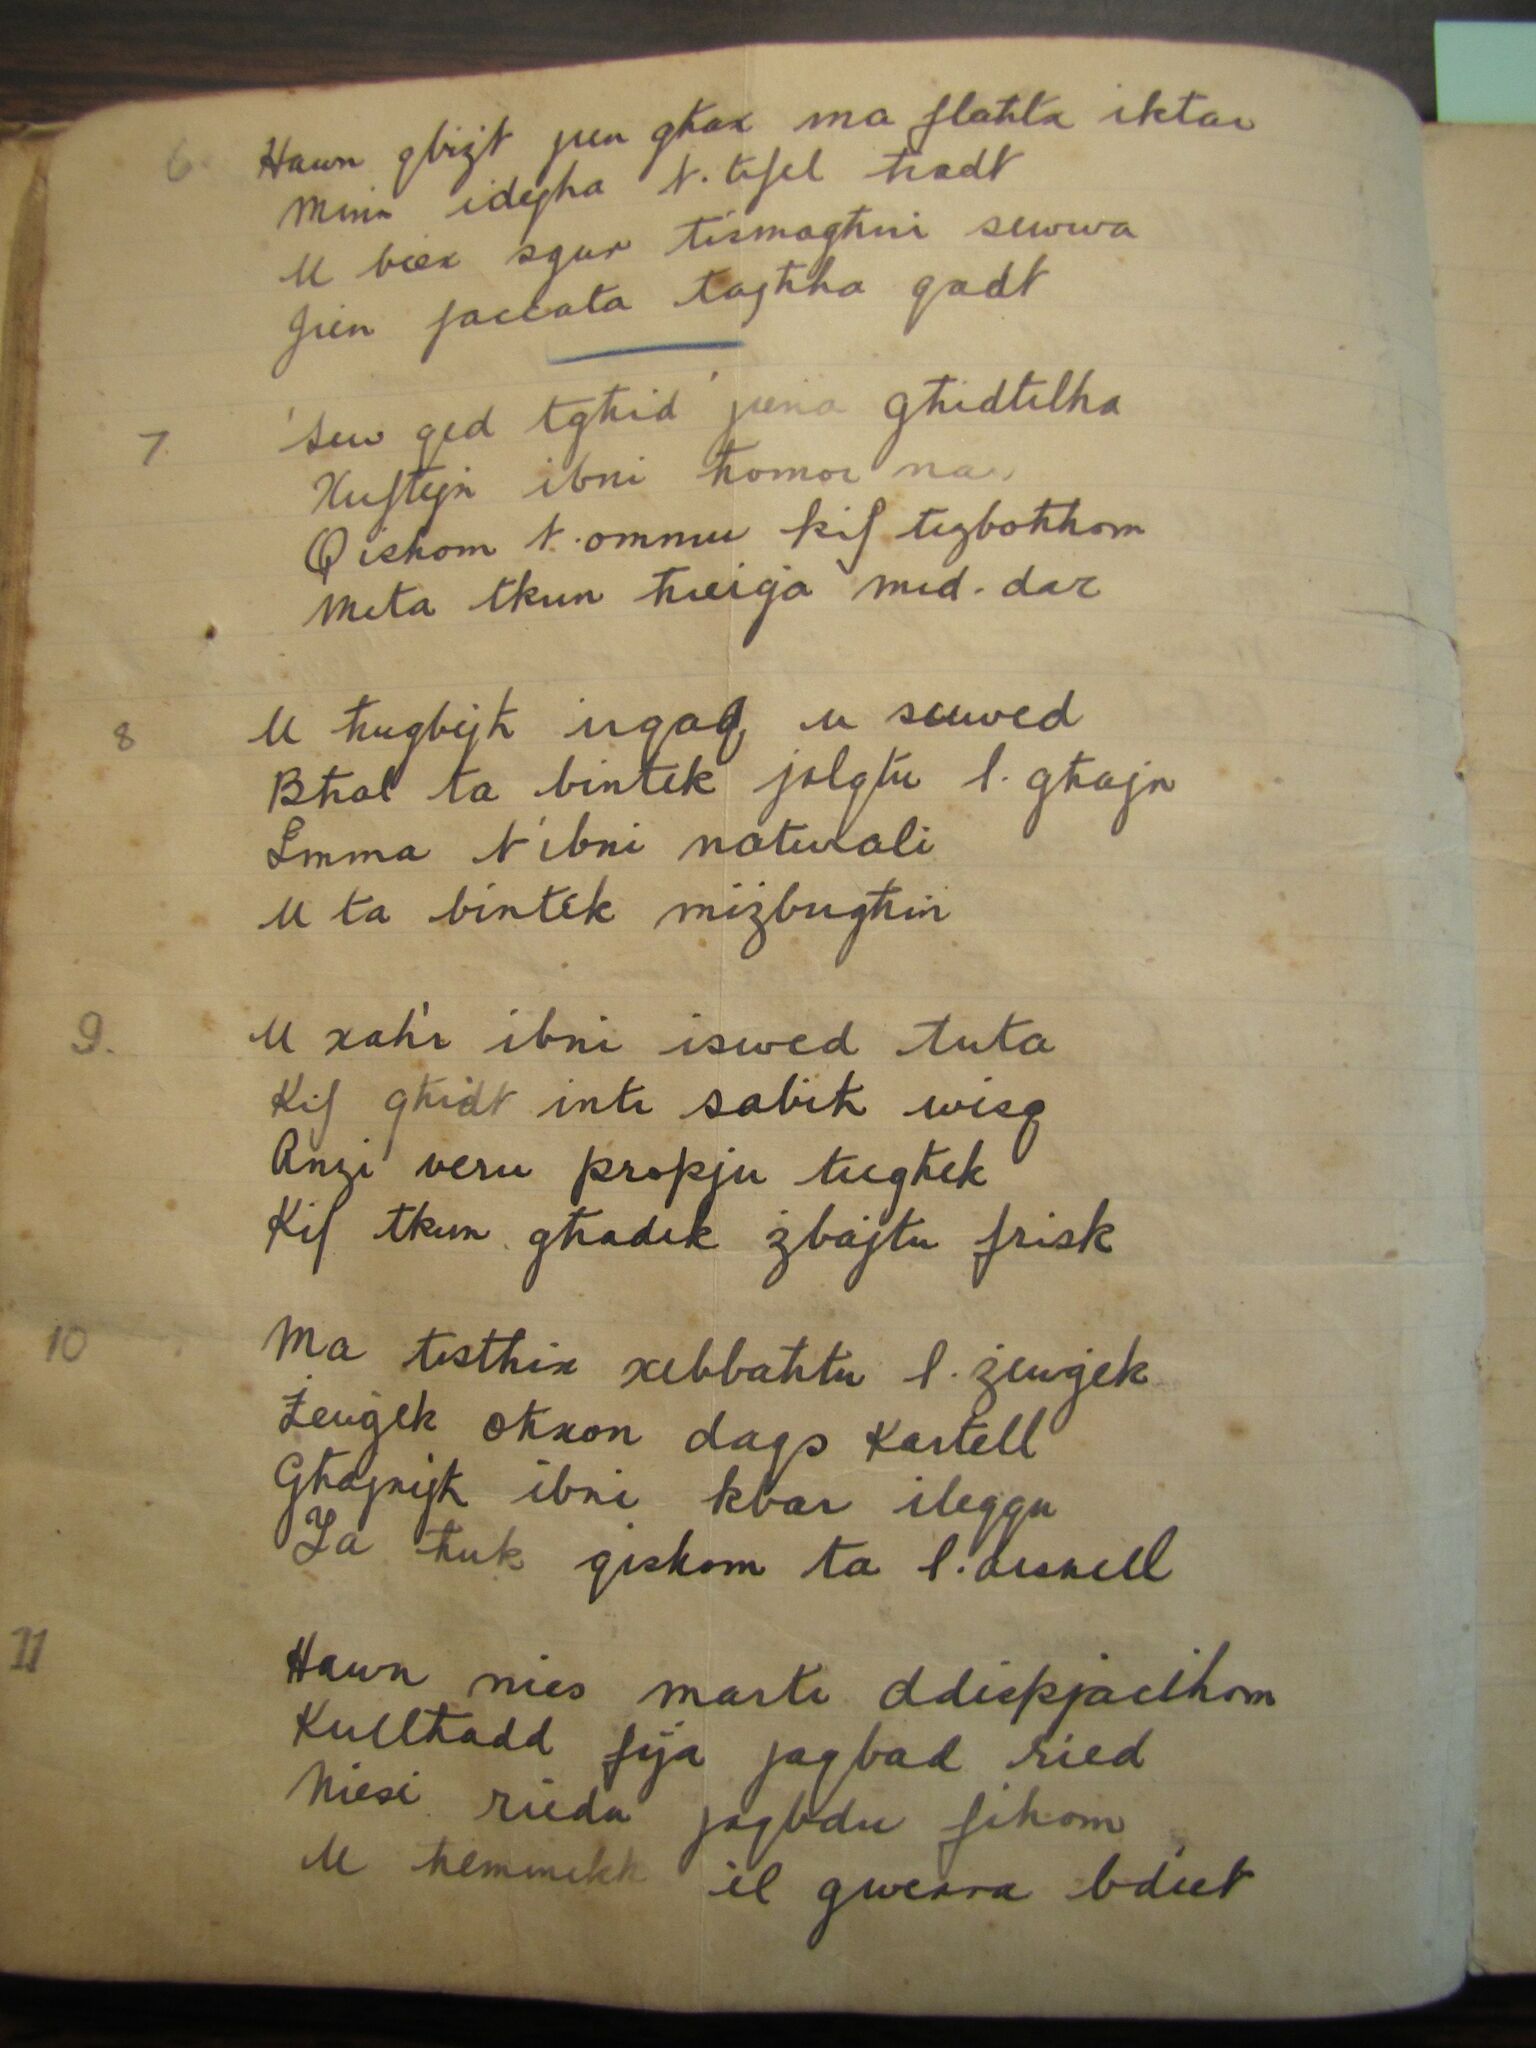 6. Hawn qbizt jien għax ma flaħtx iktar
Minn idejha t. tifel ħadt
U biex sgur tismagħni sewwa
Jien faccata tagħha qadt
7 'Sew qed tgħid' jiena għidtilha
Xuftejn ibni ħomor nar
Qishom t. ommu kif tizbothhom
Meta tkun ħierġa mid. dar
8 U ħuġbejh irqaq u suwed
Bħal ta bintek jolqtu l. għajn
Imma t'ibni naturali
U ta bintek miżbugħin
9. U xah'r ibni iswed tuta
Kif għidt inti sabiħ wisq
Anzi veru propju tiegħek
Kif tkun għadek żbajtu frisk
10 Ma tistħix xebbahtu l. żewġek
Żewġek oħxon daqs Kastell
Għajnijh ibni kbar ileqqu
Ja ħuk qishom ta l. ausnell
11 Hawn nies marti ddispjaċihom
Kulħadd fija jaqbad ried
Niesi riedu jaqbdu fihom
U hemmekk il gwerra bdiet